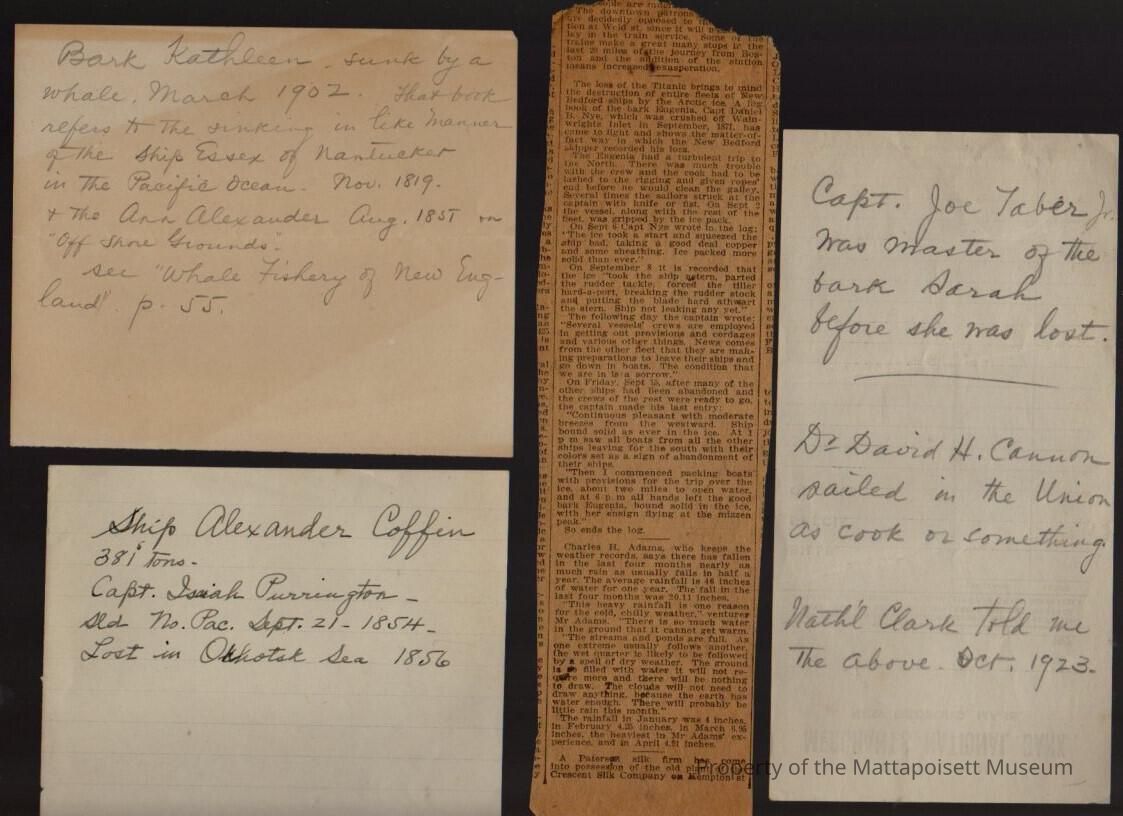 Bark Kathleen - sunk by a
whale. March 1902. That book
refers to the sinking in like manner
of the Ship Essex of Nantucket
in the Pacific Ocean - Nov. 1819.
& the Ann Alexander Aug. 1851 on
"Off Shore Grounds".
see "Whale Fishery of New Eng-
land". p. 55.
Ship Alexander Coffin
381 tons -
Capt. Isaiah Purrington -
Sld No. Pac. Sept. 21 - 1854 -
Lost in Okhotsk Sea 1856
The downtown patrons
are decidedly opposed to
tion at Weld st, since it will
lay in the train service. Some of
trains make a great many stops in the
last 20 miles of the journey from Bos-
ton and the addition of the station
means increased exasperation.
The loss of the Titanic brings to mind
the destruction of entire fleets of New
Bedford ships by the Arctic ice. A log
book of the bark Eugenia, Capt Daniel
B. Nye, which was crushed off Wain-
wrights Inlet in September, 1871, has
come to light and shows the matter-of-
fact way in which the New Bedford
skipper recorded his loss.
The Eugenia had a turbulent trip to
the North. There was much trouble
with the crew and the cook had to be
lashed to the rigging and given ropes'
end before he would clean the galley.
Several times the sailors struck at the
captain with knife or fist. On Sept 2
the vessel, along with the rest of the
fleet, was gripped by the ice pack.
On Sept 6 Capt Nye wrote in the log:
"The ice took a start and squeezed the
ship bad, taking a good deal copper
and some sheathing. Ice packed more
solid than ever."
On September 8 it is recorded that
the ice "took the ship astern, parted
the rudder tackle, forced the tiller
hard-a-port, breaking the rudder stock
and putting the blade hard athwart
the stern. Ship not leaking any yet."
The following day the captain wrote:
"Several vessels' crews are employed
in getting out provisions and cordages
and various other things. News comes
from the other fleet that they are mak-
ing preparations to leave their ships and
go down in boats. The condition that
we are in is a sorrow."
On Friday, Sept 15, after many of the
other ships had been abandoned and
the crews of the rest were ready to go,
the captain made his last entry:
"Continuous pleasant with moderate
breezes from the westward. Ship
bound solid as ever in the ice. At 1
p m saw all boats from all the other
ships leaving for the south with their
colors set as a sign of abandonment of
their ships.
"Then I commenced packing boats
with provisions for the trip over the
ice, about two miles to open water,
and at 6 p.m all hands left the good
bark Eugenia, bound solid in the ice,
with her ensign flying at the mizzen
peak."
So ends the log.
Charles H. Adams, who keeps the
weather records, says there has fallen
in the last four months nearly as
much rain as usually falls in half a
year. The average rainfall is 46 inches
of water for one year. The fall in the
last four months was 20.11 inches.
"This heavy rainfall is one reason
for the cold, chilly weather," ventures
Mr Adams. "There is so much water
in the ground that it cannot get warm.
"The streams and ponds are full. As
one extreme usually follows another,
the wet quarter is likely to be followed
by a spell of dry weather. The ground
is so filled with water it will not re-
quire more and there will be nothing
to draw. The clouds will not need to
draw anything, because the earth has
water enough. There will probably be
little rain this month."
The rainfall in January was 4 inches,
in February 4.25 inches, in March 6.95
inches, the heaviest in Mr Adams' ex-
perience, and in April 4.91 inches.
A Paterson silk firm has come
into possession of the old plant
Crescent Silk Company on Kempton st
Capt. Joe Taber Jr.
was master of the
bark Sarah
before she was lost.
Dr David H. Cannon
sailed in the Union
as cook or something.
Nath'l Clark told me
the above. Oct. 1923.
Property of the Mattapoisett Museum